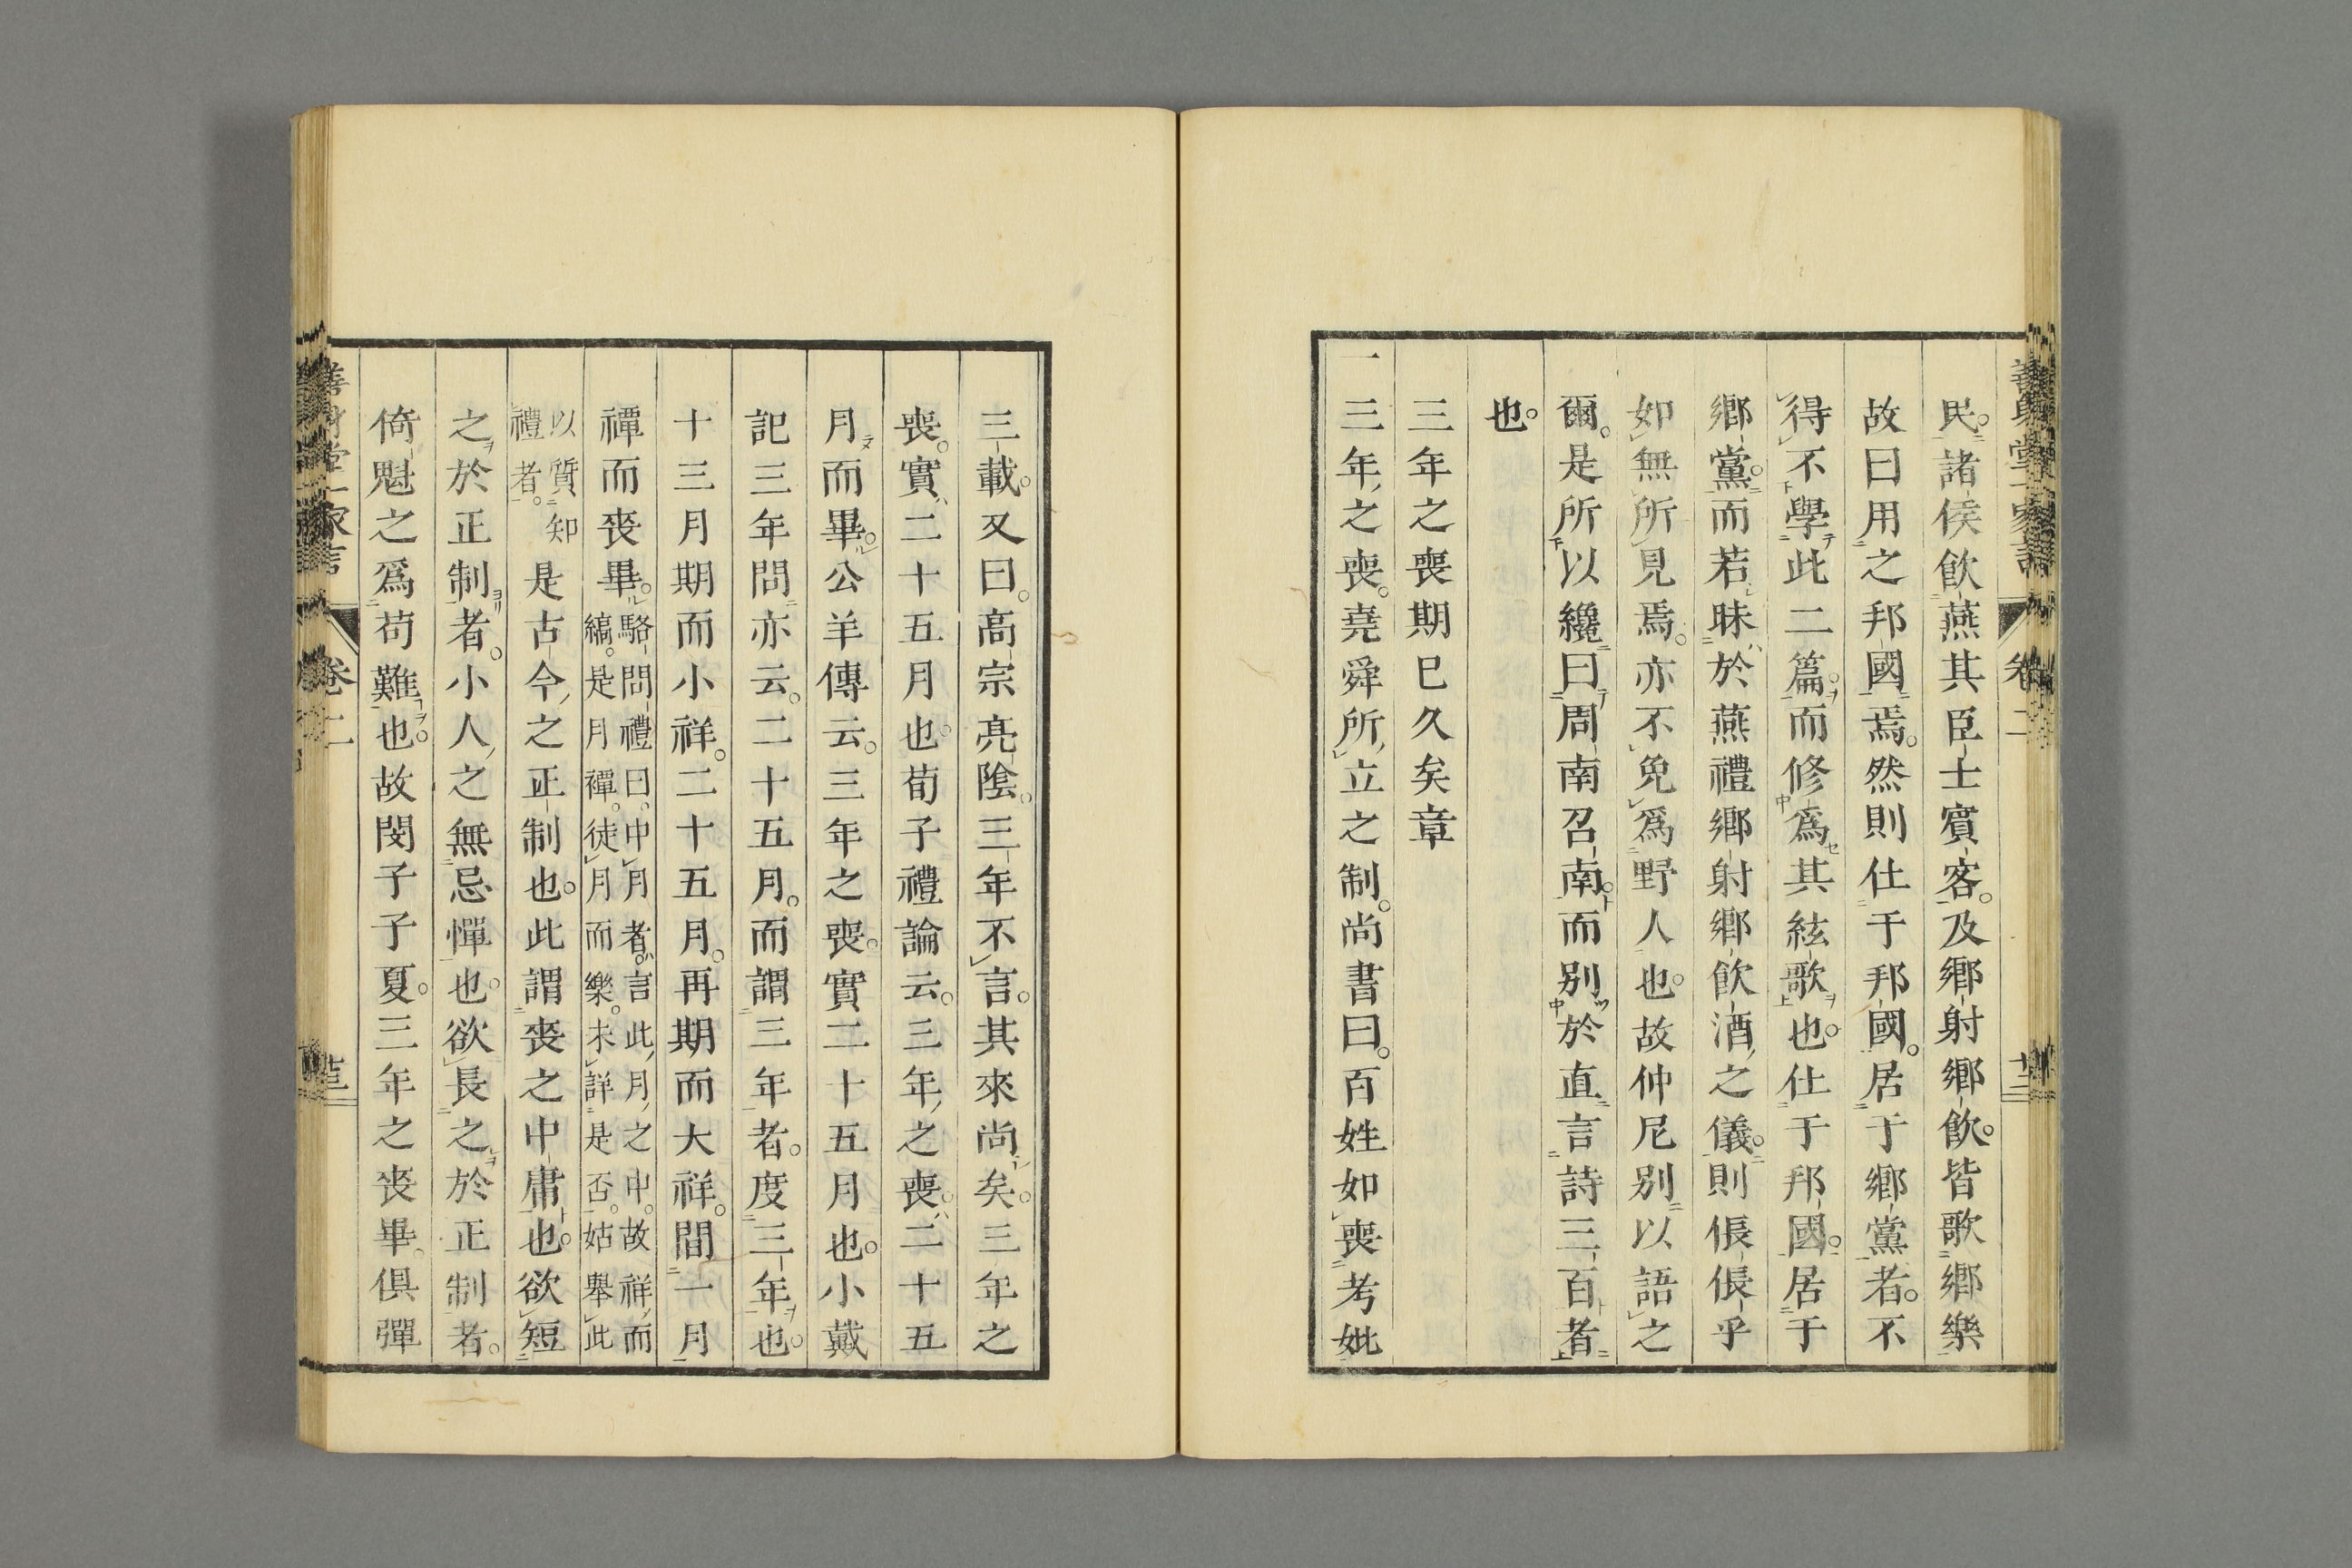 民。諸侯飮燕其臣士賓客。及鄕射鄕飮。皆歌鄕樂
故曰用之邦國焉。然則仕于邦國。居于鄕黨者。不
得不學此二篇。而修爲其絃歌也。仕于邦國。居于
鄕黨。而若昧於燕禮鄕射鄕飮酒之儀。則倀倀乎
如無所見焉。亦不免爲野人也。故仲尼別以語之
爾。是所以纔曰周南召南。而別於直言詩三百者
也。
三年之喪期已久矣章
一三年之喪。堯舜所立之制。尚書曰。百姓如喪考妣
三載。又曰。高宗亮陰。三年不言。其來尚矣。三年之
喪。實二十五月也。荀子禮論云。三年之喪。二十五
月而畢。公羊傳云。三年之喪。實二十五月也。小戴
記三年問亦云。二十五月。而謂三年者。度三年也。
十三月期而小祥。二十五月。再期而大祥。間一月
禫而喪畢。
駱問禮曰。中月者。言此月之中。故祥而
縞。是月禫。徒月而樂。未詳是否。姑擧此
以質知
禮者。
是古今之正制也。此謂喪之中庸也。欲短
之於正制者。小人之無忌憚也。欲長之於正制者。
倚魁之爲苟難也。故閔子子夏。三年之喪畢。俱彈
卷二
卷二